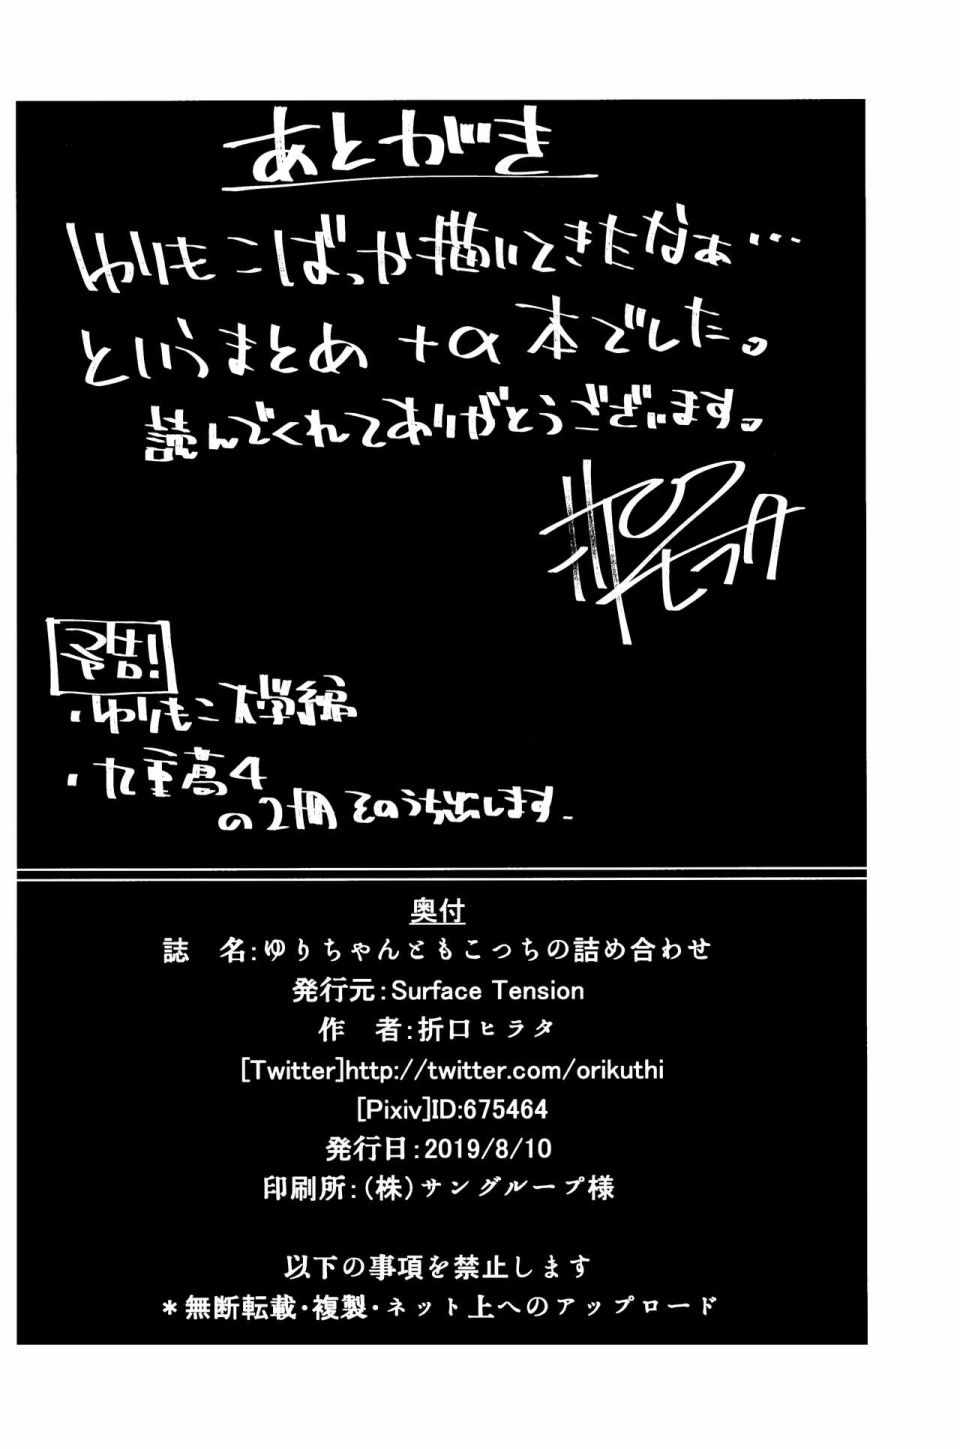 あとがき
ゆりもこばっか描いてきたなぁ…
というまとめ+α本でした。
読んでくれてありがとうございます。
予告!
・ゆりもこ大学編
・九重高4
の2冊そのうち出します
奥付
誌　名:ゆりちゃんともこっちの詰め合わせ
発行元:Surface Tension
作　者:折口ヒラタ
[Twitter]http://twitter.com/orikuthi
[Pixiv]ID:675464
発行日:2019/8/10
印刷所:(株)サングループ様
以下の事項を禁止します
*無断転載・複製・ネット上へのアップロード